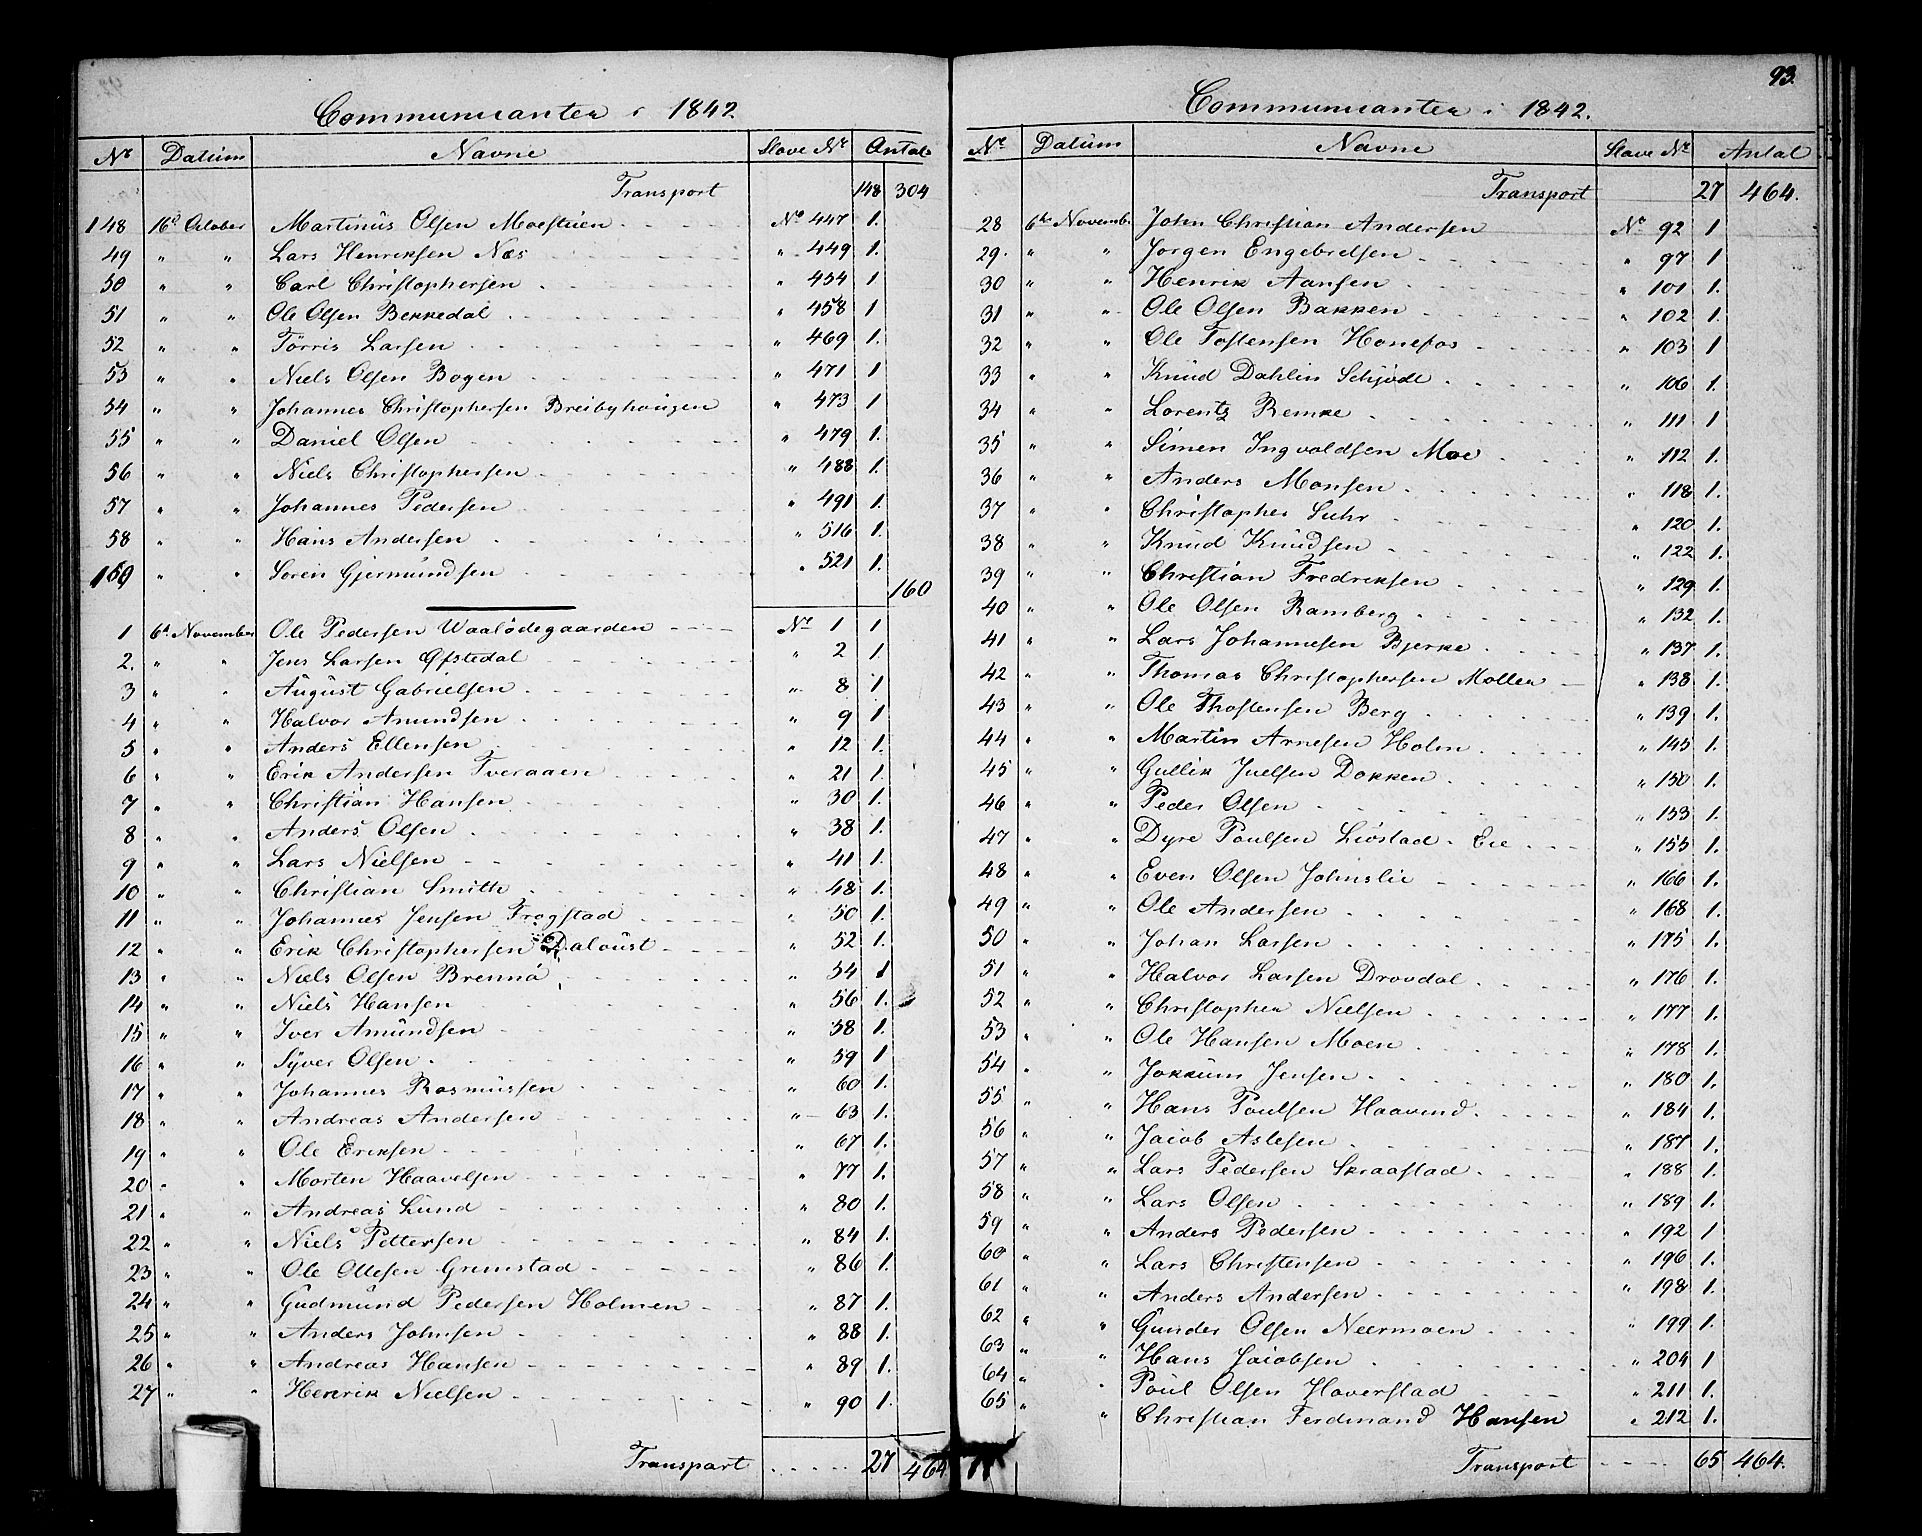 Communicanter i 1842.
No Datum Navne Slave No Antal
Transport 148 304
148 16de October Martinus Olsen Moestuen No 447 1.
49 " " Lars Henriksen Næs " 449 1.
50 " " Carl Christophersen " 454 1
51 " " Ole Olsen Bekkedal " 458 1
52 " " Tørris Larsen " 469 1.
53 " " Niels Olsen Bogen " 471 1
54 " " Johannes Christophersen Breibyhougen " 473 1
55 " " Daniel Olsen " 479 1.
56 " " Niels Christophersen " 488 1.
57 " " Johannes Pedersen " 491 1.
58 " " Hans Andersen " 516 1.
159 " " Søren Gjermundsen " 521 1.
160
1 6te November Ole Pedersen Waalødegaarden No 1 1
2. " " Jens Larsen Øfstedal " 2 1.
3 " " August Gabrielsen " 8 1
4 " " Halvor Amundsen " 9 1
5 " " Anders Ellensen " 12 1.
6 " " Erik Andersen Tveraaen " 21 1.
7 " " Christian Hansen " 30 1.
8 " " Anders Olsen " 38 1.
9 " " Lars Nielsen " 41 1.
10 " " Christian Smith " 48 1.
11 " " Johannes Jensen Frogstad " 50 1.
12 " " Erik Christophersen Daloust " 52 1.
13 " " Niels Olsen Brennø " 54 1
14 " " Niels Hansen " 56 1.
15 " " Iver Amundsen " 58 1.
16 " " Syver Olsen " 59 1
17 " " Johannes Rasmussen " 60 1.
18 " " Andreas Andersen " 63 1.
19 " " Ole Eriksen " 67 1.
20 " " Morten Haavelsen " 77 1.
21 " " Andreas Lund " 80 1.
22 " " Niels Pettersen " 84 1.
23 " " Ole Ollesen Grimstad " 86 1.
24 " " Gudmund Pedersen Holmen " 87 1.
25 " " Anders Johnsen " 88 1.
26 " " Andreas Hansen " 89 1.
27 " " Henrik Nielsen " 90 1.
Transport 27 464
93.
Communicanter i 1842.
No Datum Navne Slave No Antal
Transport 27 464.
28 6te Novemb. John Christian Andersen No 92 1
29. " " Jørgen Engebretsen " 97 1
30 " " Henrik Aansen " 101 1.
31 " " Ole Olsen Bakken " 102 1.
32 " " Ole Tostensen Hønefos " 103 1
33 " " Knud Dahlin Schjødt " 106 1.
34 " " Lorentz Remke " 111 1
35 " " Simen Ingvoldsen Moe " 112 1.
36 " " Anders Monsen " 118 1.
37 " " Christopher Suhr " 120 1.
38 " " Knud Knudsen " 122 1.
39 " " Christian Fredriksen " 129 1.
40 " " Ole Olsen Ramberg " 132 1.
41 " " Lars Johannesen Bjerke " 137 1.
42 " " Thomas Christophersen Møller " 138 1.
43 " " Ole Thostensen Berg " 139 1.
44 " " Martin Arnesen Holm " 145 1.
45 " " Gullik Juelsen Dokken " 150 1.
46 " " Peder Olsen " 153 1.
47 " " Dyre Poulsen Liøstad Eie " 155 1.
48 " " Even Olsen Johnslie " 166 1.
49 " " Ole Andersen " 168 1.
50 " " Johan Larsen " 175 1.
51 " " Halvor Larsen Drovdal " 176 1.
52 " " Christopher Nielsen " 177 1.
53 " " Ole Hansen Moen " 178 1.
54 " " Jokkum Jensen " 180 1.
55 " " Hans Poulsen Haavind " 184 1.
56 " " Jacob Aslesen " 187 1.
57 " " Lars Pedersen Skraastad " 188 1.
58 " " Lars Olsen " 189 1.
59 " " Anders Pedersen " 192 1
60 " " Lars Christensen " 196 1.
61 " " Anders Andersen " 198 1.
62 " " Gunder Olsen Neermoen " 199 1.
63 " " Hans Jacobsen " 204 1
64 " " Poul Olsen Haverstad " 211 1.
65 " " Christian Ferdinand Hansen " 212 1.
Transport 65 464.